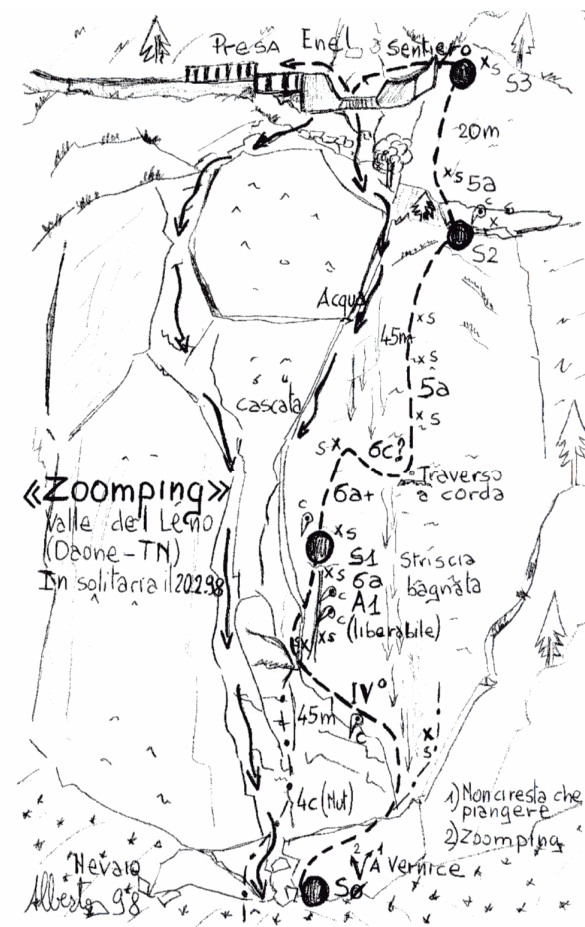 Presa Enel sentiero
xs S3
20m
xs 5a
c
x
S2
Acqua
45m xs
xs
5a
xs
cascata
sx 6c?
Traverso
a corda
6a+
«Zoomping»
Valle del Léno
(Daone-TN)
In solitaria il 20.2.98
c
xs
S1
xs 6a
c A1
c
sx xs (liberabile)
Striscia
bagnata
IV°
c
45m
xs
4c (Nut)
1) Non ci resta che
piangere
2) Zoomping
2 1
A Vernice
Nevaio
SØ
Alberto 98